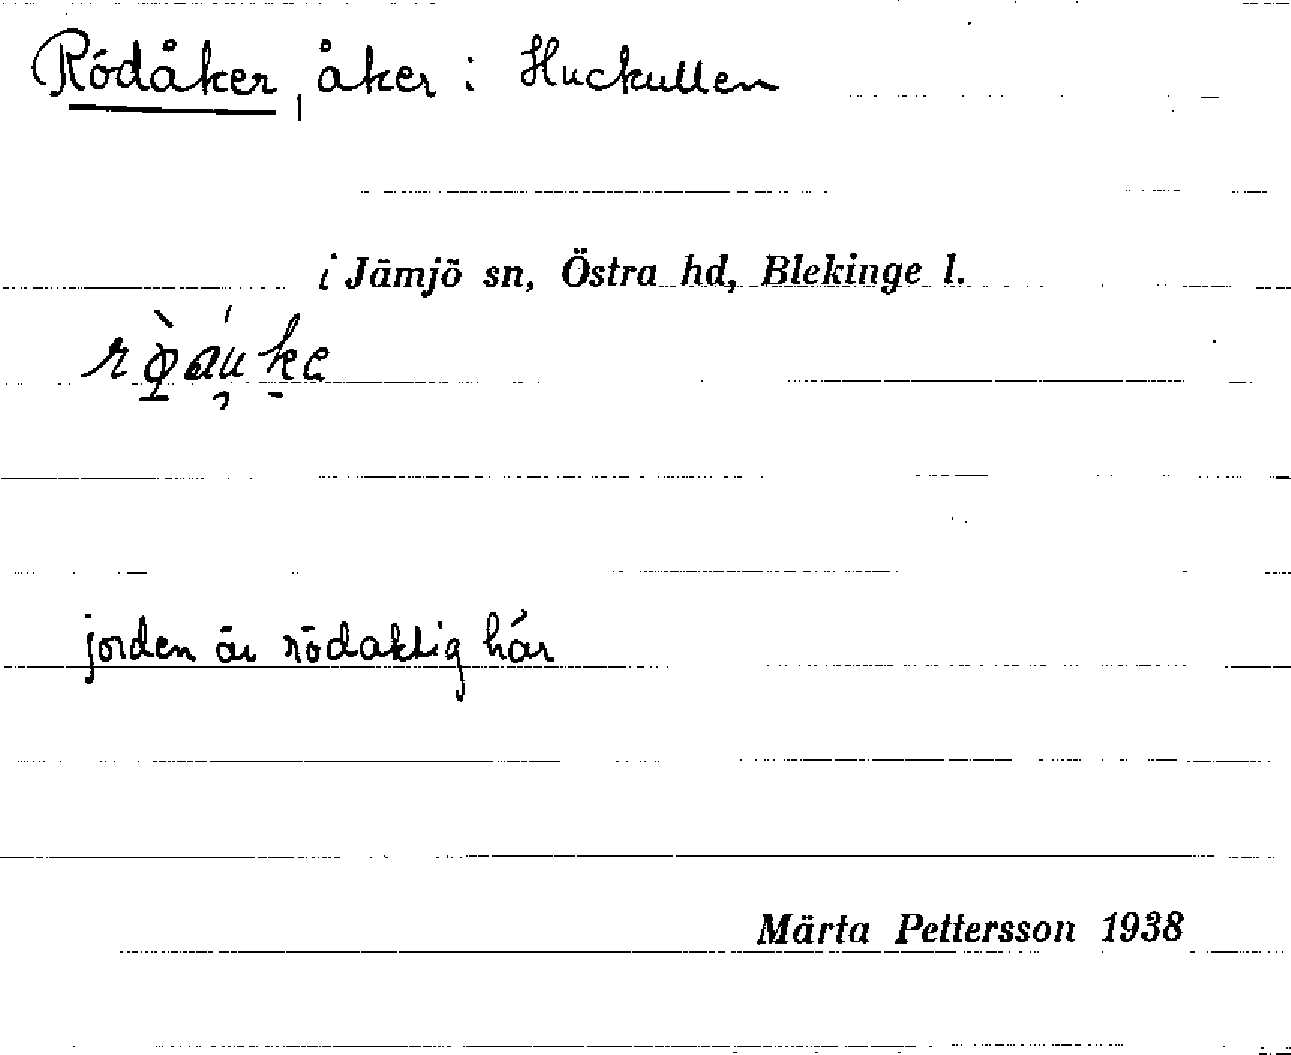 Rödåker, åker i Huckullen
i Jämjö sn, Östra hd, Blekinge l.
jorden är rödaktig här
Märta Pettersson 1938